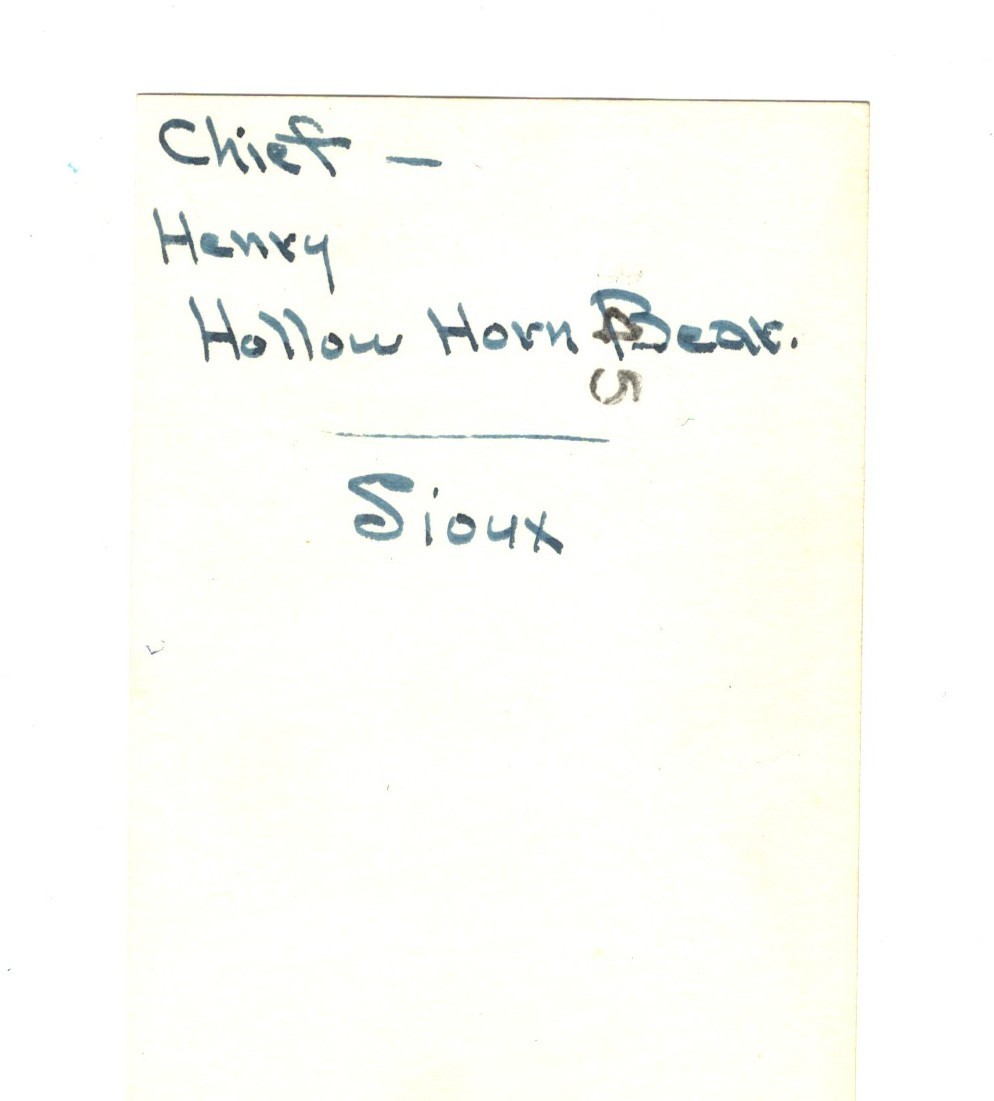 Chief —
Henry
Hollow Horn Bear.
Sioux